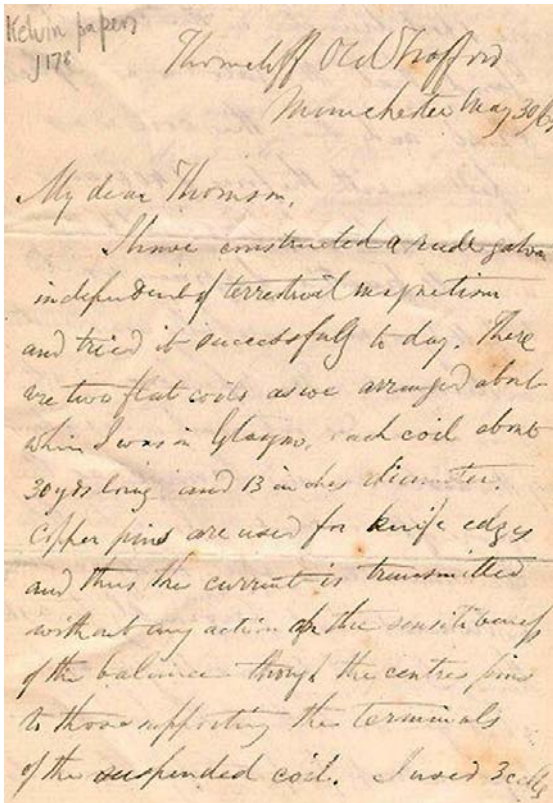 Kelvin papers
J178
Thorncliff Old Trafford
Manchester May 30/6
My dear Thomson,
I have constructed a rude galva
independent of terrestrial magnetism
and tried it successfully to day. There
are two flat coils as we arranged about
when I was in Glasgow, each coil about
30 yds long and 13 inches diameter.
Copper pins are used for knife edges
and thus the current is transmitted
without any action on the sensitiveness
of the balance though the centres pins
to those supporting the terminals
of the suspended coil. I used 3 cells